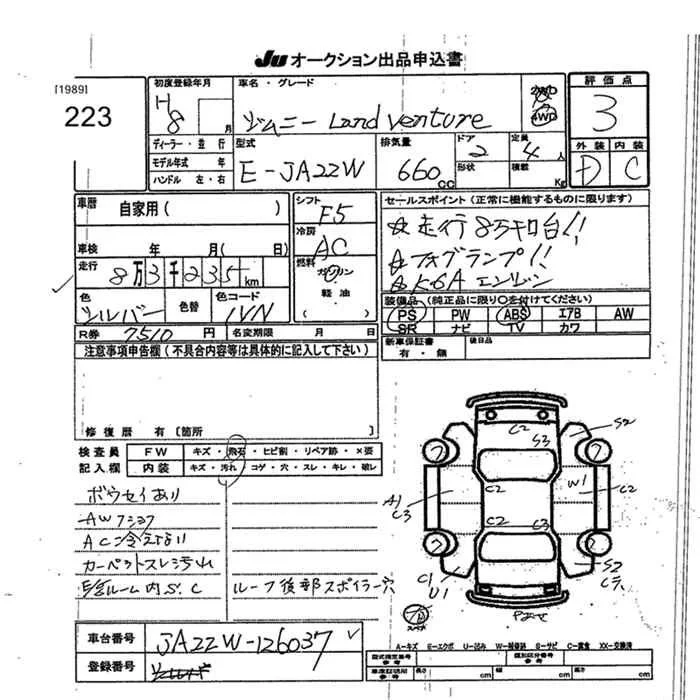 Ju オークション出品申込書
[1989]
223
初度登録年月
H 8 月
車名・グレード
ジムニー Land Venture
2WD
4WD
評価点
3
外装 内装
D C
ディーラー・並行
モデル年式 年
ハンドル 左・右
型式
E-JA22W
排気量
660 CC
ドア 2
形状
定員 4 人
積載 Kg
車歴 自家用( )
車検 年 月( 日)
走行 8万3千235 km
色 シルバー
色替
色コード 1VN
シフト F5
冷房 AC
燃料 ガソリン・軽油
セールスポイント(正常に機能するものに限ります)
☆走行8万キロ台!!
☆フォグランプ!!
☆K6Aエンジン
装備品(純正品に限り○を付けてください)
PS PW ABS エアB AW
SR ナビ TV カワ
新車保証書 有・無
後日品
R券 7510 円
名変期限 月 日
注意事項申告欄(不具合内容等は具体的に記入して下さい)
修復歴 有〔箇所
検査員記入欄
FW キズ・飛石・ヒビ割・リペア跡・×要
内装 キズ・汚れ・コゲ・穴・スレ・キレ・破レ
ボウセイあり
AWフショク
AC冷えない
カーペットスレ汚れ
室ルーム内S.C
ルーフ後部スポイラー穴
C2
S3
S2
C2
W1
C2
A1
C3
C2
C3
C1
U1
S2
スペア
A-キズ E-エクボ U-凹み W-補修跡 S-サビ C-腐食 XX-交換済
車台番号 JA22W-126037
登録番号
型式指定番号 参考
類別区分番号 参考
車庫証明用 参考
長さ cm
幅 cm
高さ cm